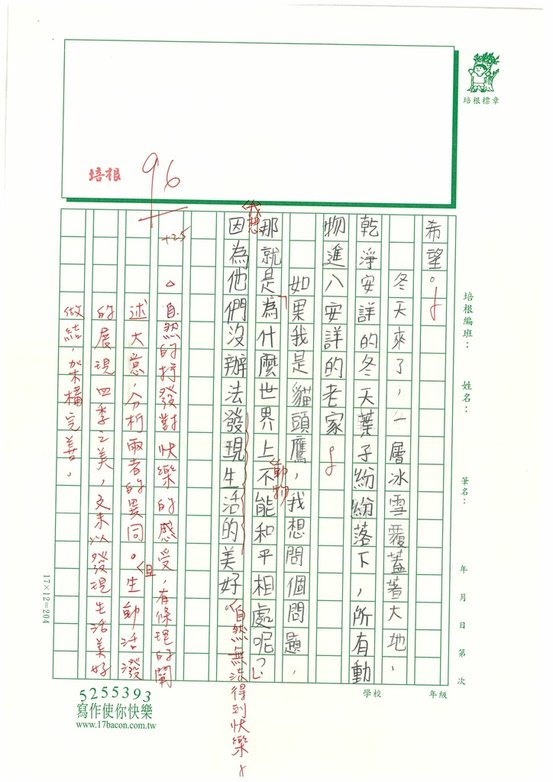 培根標章
培根編班：
姓名：
筆名：
年 月 日 第 次
學校
年級
希望。
冬天來了，一層冰雪覆蓋著大地，
乾淨安詳的冬天葉子紛紛落下，所有動
物進入安詳的老家
如果我是貓頭鷹，我想問個問題，
那就是為什麼世界上動物不能和平相處呢？
我想
因為他們沒辦法發現生活的美好，自然無法得到快樂。
培根
96
+25
自然的抒發對快樂的感受，有條理的闡
述大意，分析兩者的異同。且生動活潑
的展現四季之美，文末以發現生活美好
做結，架構完善。
17×12=204
5255393
寫作使你快樂
www.17bacon.com.tw